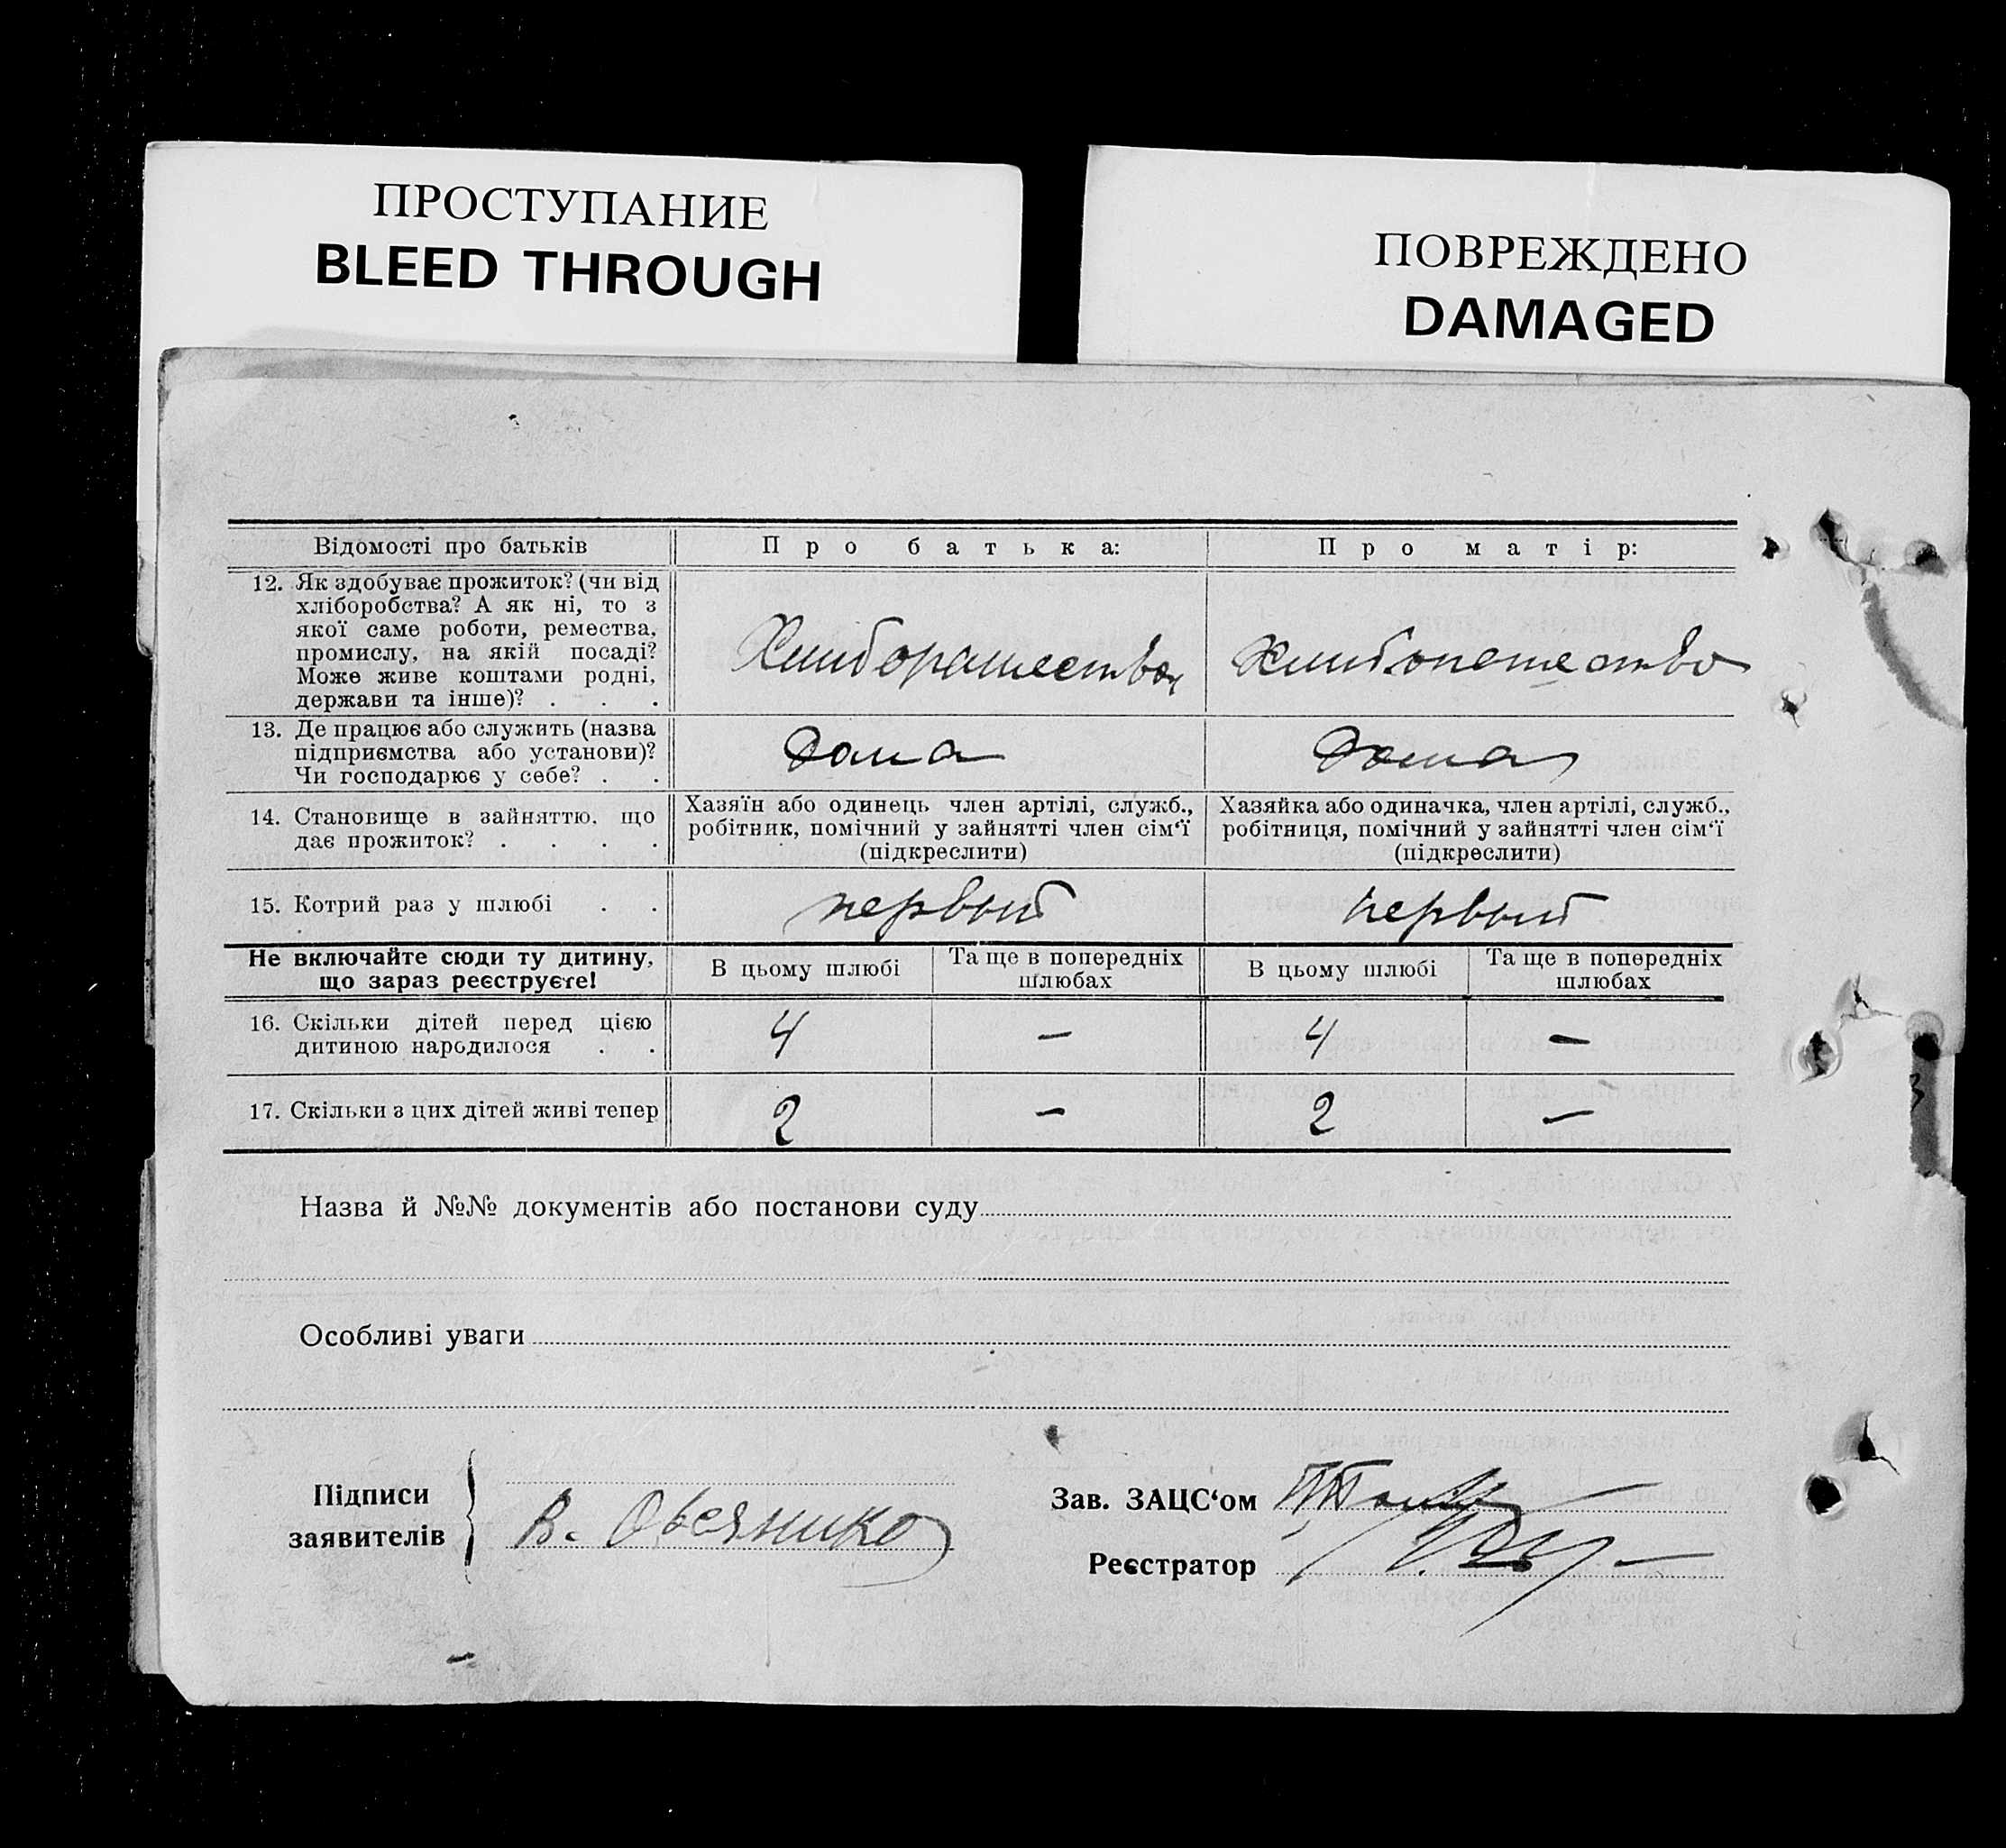 ПРОСТУПАНИЕ
BLEED THROUGH
ПОВРЕЖДЕНО
DAMAGED
Відомості про батьків
Про батька:
Про матір:
12. Як здобуває прожиток? (чи від
хліборобства? А як ні, то з
якої саме роботи, ремества,
промислу, на якій посаді?
Може живе коштами родні,
держави та інше)? . . .
13. Де працює або служить (назва
підприємства або установи)?
Чи господарює у себе? . .
Дома
Дома
14. Становище в зайняттю, що
дає прожиток? . . . .
Хазяїн або одинець член артілі, служб.,
робітник, помічний у зайнятті член сім‘ї
(підкреслити)
Хазяйка або одиначка, член артілі, служб.,
робітниця, помічний у зайнятті член сім‘ї
(підкреслити)
15. Котрий раз у шлюбі . .
первый
первый
Не включайте сюди ту дитину,
що зараз реєструєте!
В цьому шлюбі
Та ще в попередніх
шлюбах
В цьому шлюбі
Та ще в попередніх
шлюбах
16. Скільки дітей перед цією
дитиною народилося . .
4
—
4
—
17. Скільки з цих дітей живі тепер
2
—
2
—
Назва й №№ документів або постанови суду
Особливі уваги
Підписи
заявителів
В. Овсянико
Зав. ЗАЦС‘ом
Реєстратор